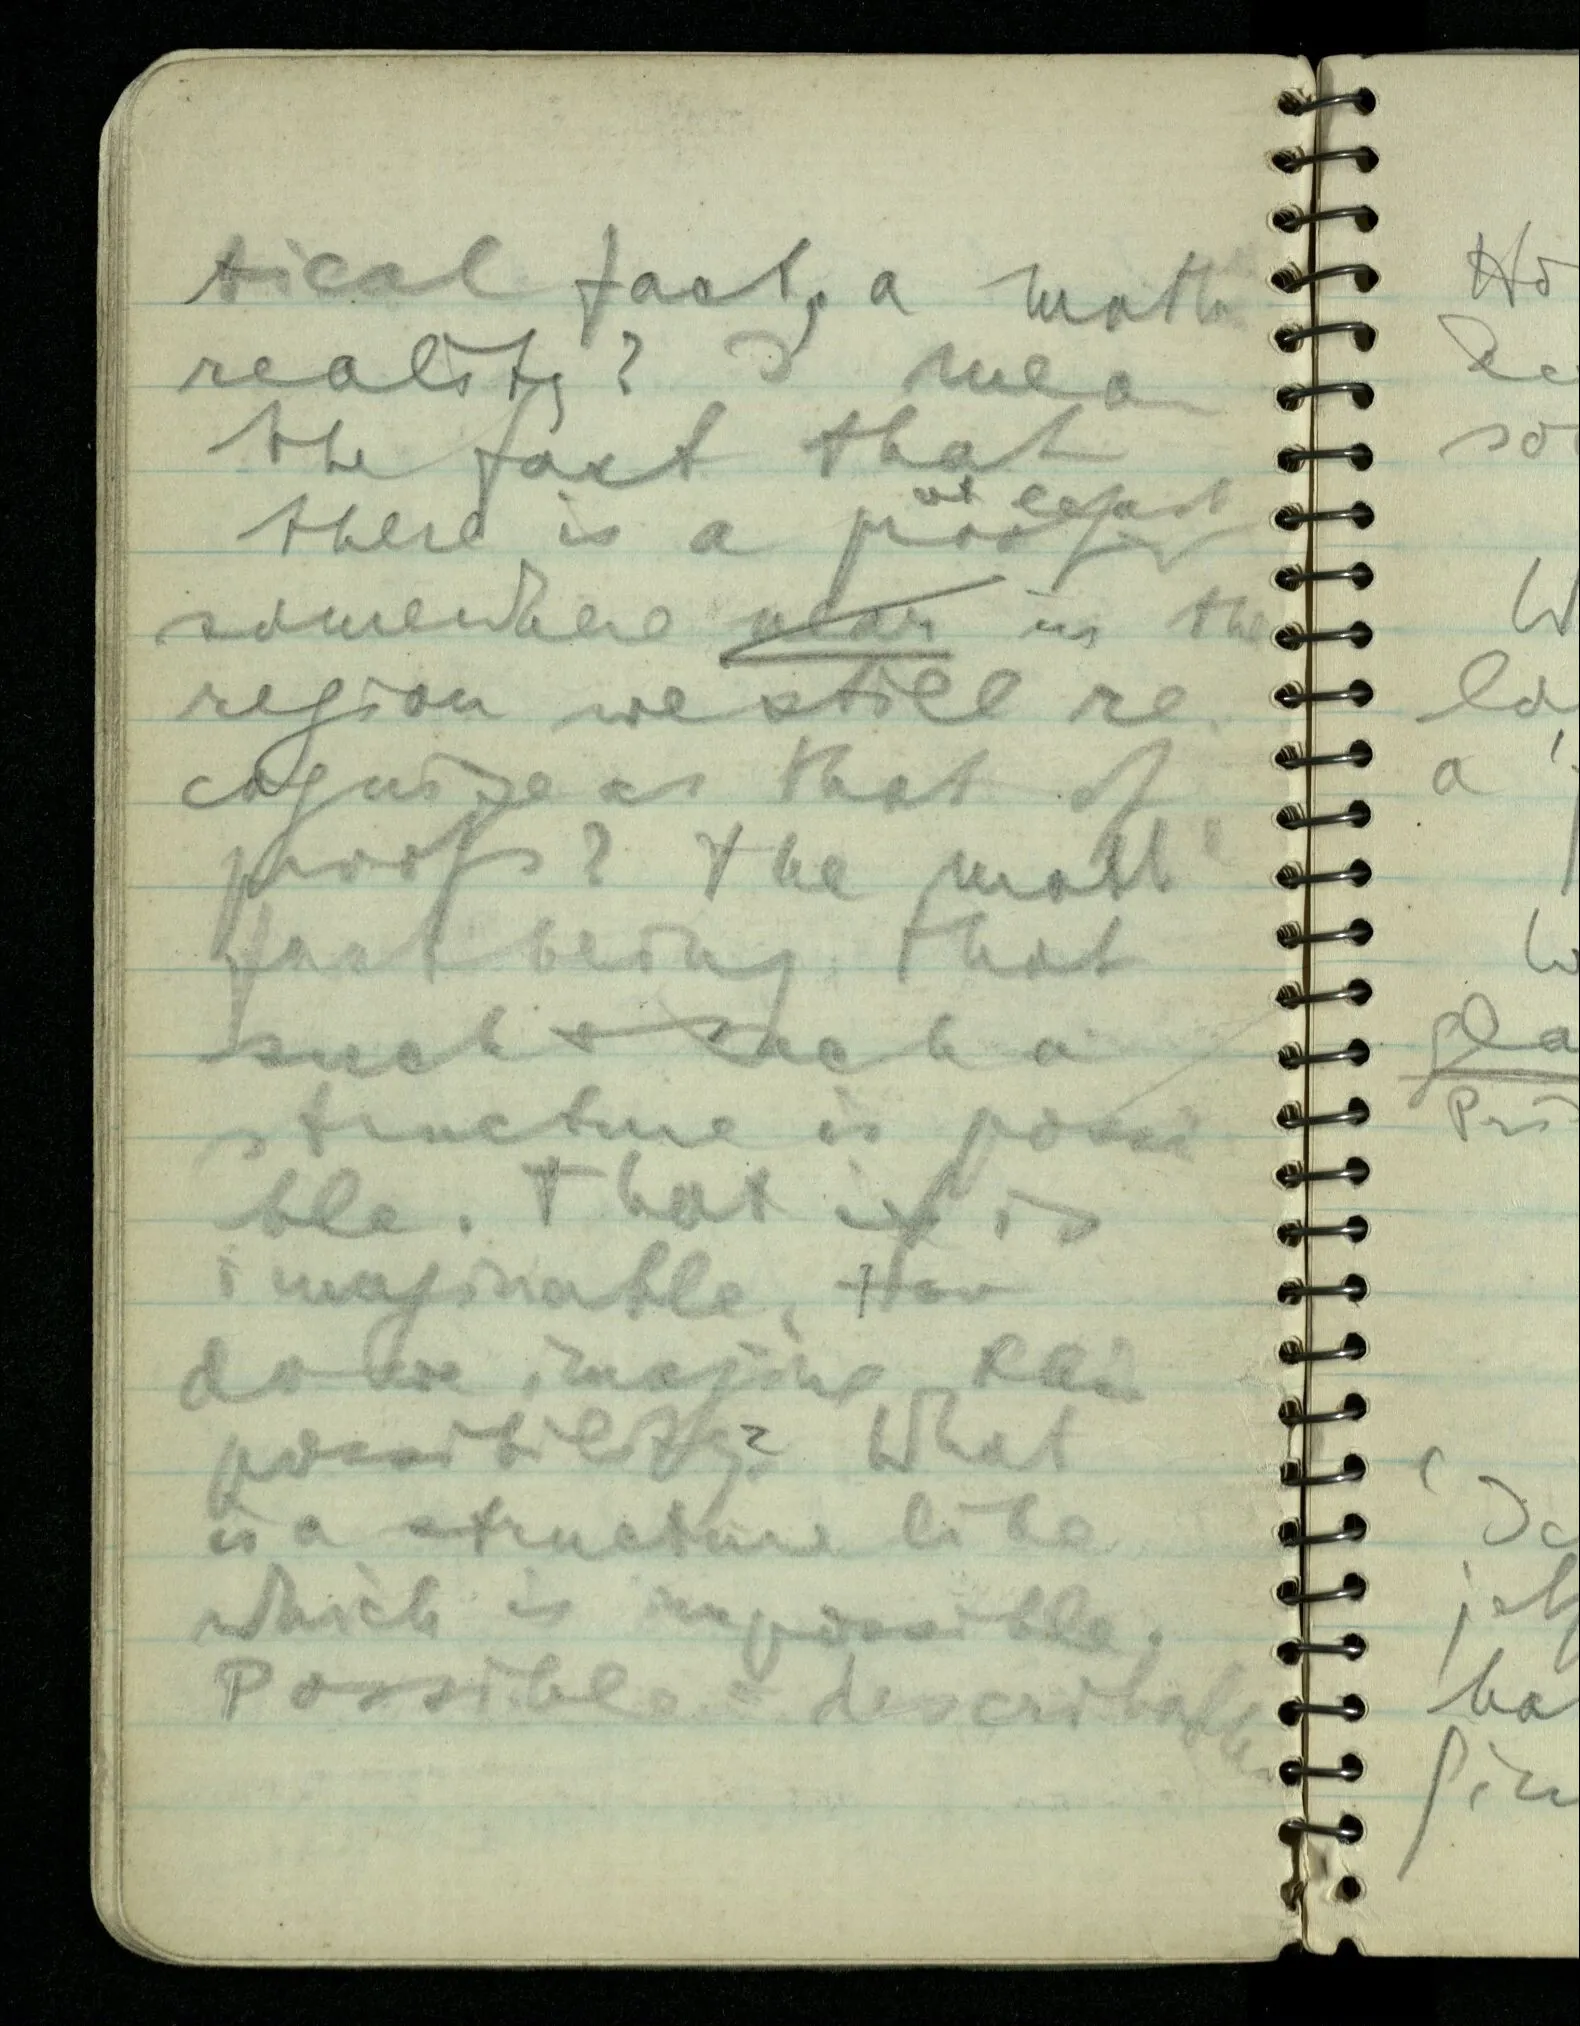 tical fact, a math
reality? I mean
the fact that
at least
there is a proof
somewhere near in the
region we still re
cognize as that of
proofs? The math
fact being that
such + such a
structure is possi
ble. That is, is
imaginable. How
do we imagine
possibility? What
is a structure like
which is impossible.
Possible = describable
Ho
so
W
a
gla
Pri
ha
fin